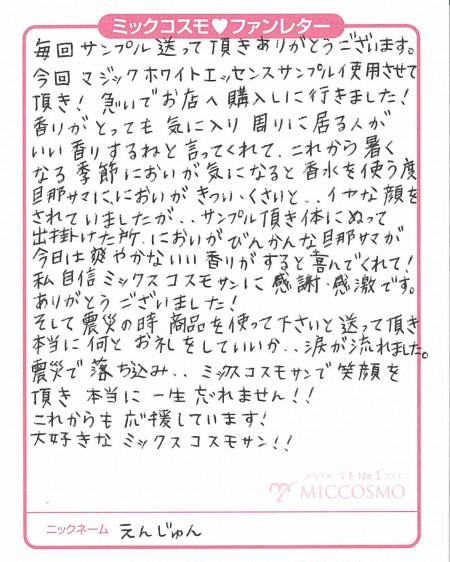 ミックコスモ♥ファンレター
毎回サンプル送って頂きありがとうございます。
今回マジックホワイトエッセンスサンプル使用させて
頂き！急いでお店へ購入しに行きました！
香りがとっても気に入り周りに居る人が
いい香りするねと言ってくれて、これから暑く
なる季節においが気になると香水を使う度
旦那サマに、においがきつい、くさいと、、イヤな顔を
されていましたが、、サンプル頂き体にぬって
出掛けた所、においがびんかんな旦那サマが
今日は爽やかないい香りがすると喜んでくれて！
私自信ミックスコスモサンに感謝・感激です。
ありがとうございました！
そして震災の時商品を使って下さいと送って頂き
本当に何とお礼をしていいか、、涙が流れました。
震災で落ち込み、、ミックスコスモサンで笑顔を
頂き本当に一生忘れません！！
これからも応援しています！
大好きなミックスコスモサン！！
MICCOSMO
ニックネーム えんじゅん